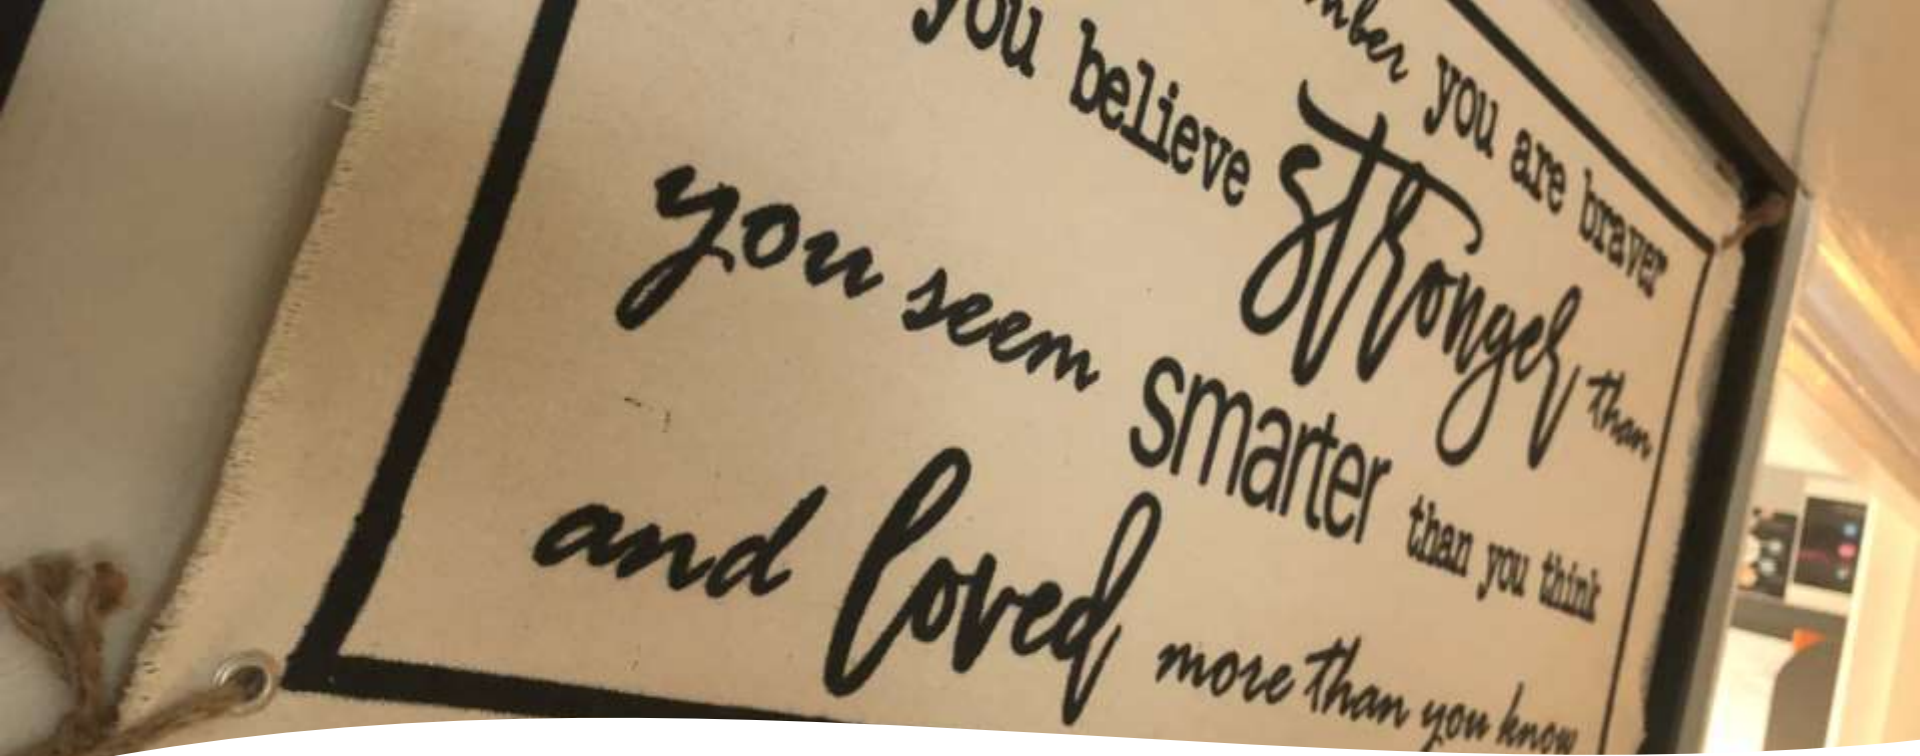 you are braver
you believe stronger than
you seem smarter than you think
and loved more than you know